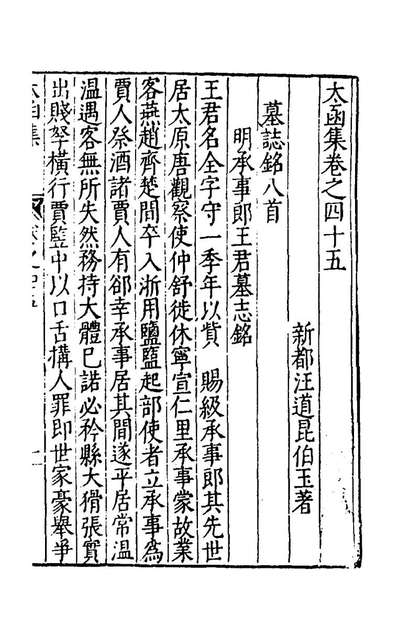 太函集卷之四十五
新都汪道昆伯玉著
墓誌銘八首
明承事郎王君墓志銘
王君名全字守一季年以貲 賜級承事郎其先世
居太原唐觀察使仲舒徙休寧宣仁里承事蒙故業
客燕趙齊楚間卒入浙用鹽鹽起部使者立承事為
賈人祭酒諸賈人有郤幸承事居其間遂平居常溫
溫遇客無所失然務持大體已諾必矜縣大猾張賓
出賤孥橫行賈監中以口舌搆人罪即世家豪舉爭
太函集